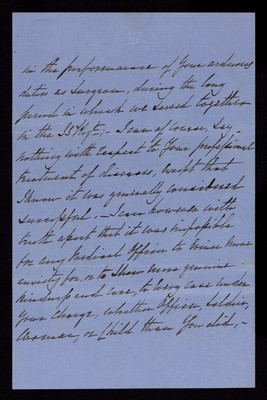 in the performance of your arduous
duties as Surgeon, during the long
period in which we served together
in the Regt; - I can of course, say
nothing with respect to your professional
treatment of diseases, except that
I know it was generally considered
successful. - I can however with
truth assert that it was impossible
for any Medical Officer to evince more
anxiety for, or to show more genuine
kindness and care, to every case under
your charge, whether Officer, Soldier,
Woman, or Child than you did, -